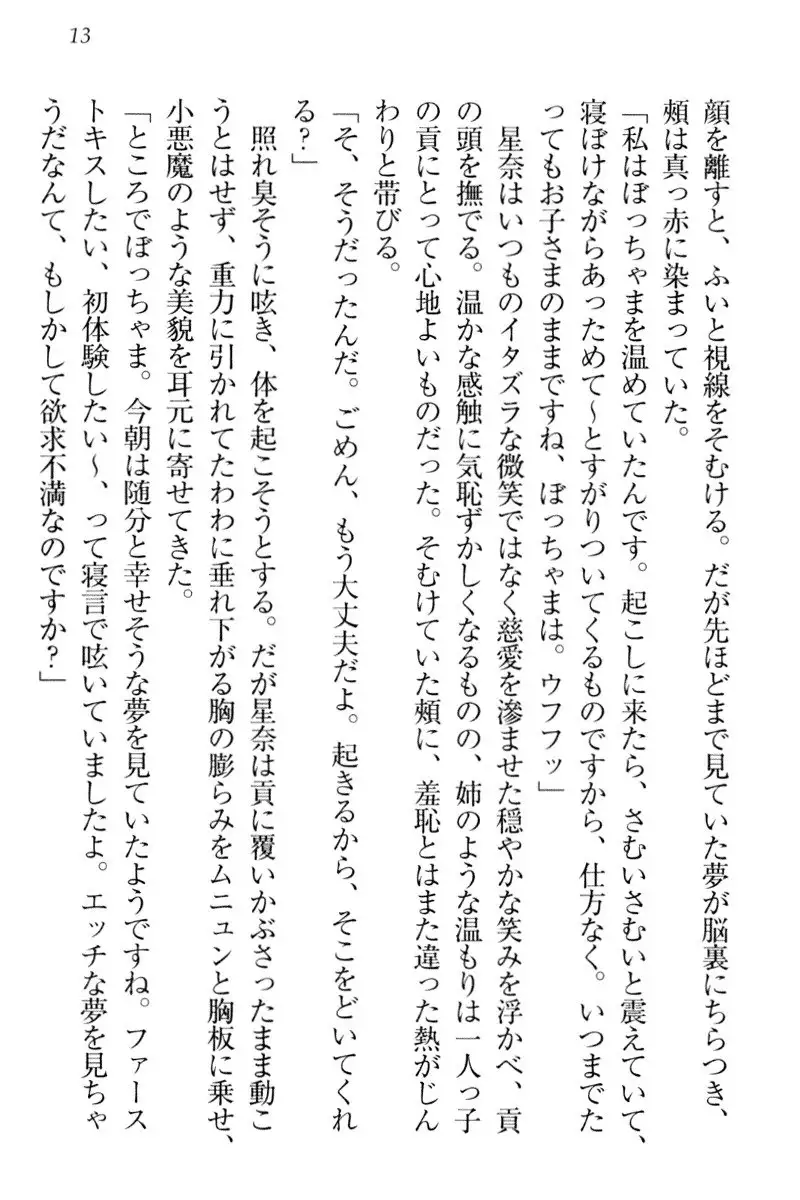 13
顔を離すと、ふいと視線をそむける。だが先ほどまで見ていた夢が脳裏にちらつき、
頰は真っ赤に染まっていた。
「私はぼっちゃまを温めていたんです。起こしに来たら、さむいさむいと震えていて、
寝ぼけながらあっためて～とすがりついてくるものですから、仕方なく。いつまでた
ってもお子さまのままですね、ぼっちゃまは。ウフフッ」
星奈はいつものイタズラな微笑ではなく慈愛を滲ませた穏やかな笑みを浮かべ、貢
の頭を撫でる。温かな感触に気恥ずかしくなるものの、姉のような温もりは一人っ子
の貢にとって心地よいものだった。そむけていた頰に、羞恥とはまた違った熱がじん
わりと帯びる。
「そ、そうだったんだ。ごめん、もう大丈夫だよ。起きるから、そこをどいてくれ
る？」
照れ臭そうに呟き、体を起こそうとする。だが星奈は貢に覆いかぶさったまま動こ
うとはせず、重力に引かれてたわわに垂れ下がる胸の膨らみをムニュンと胸板に乗せ、
小悪魔のような美貌を耳元に寄せてきた。
「ところでぼっちゃま。今朝は随分と幸せそうな夢を見ていたようですね。ファース
トキスしたい、初体験したい～、って寝言で呟いていましたよ。エッチな夢を見ちゃ
うだなんて、もしかして欲求不満なのですか？」